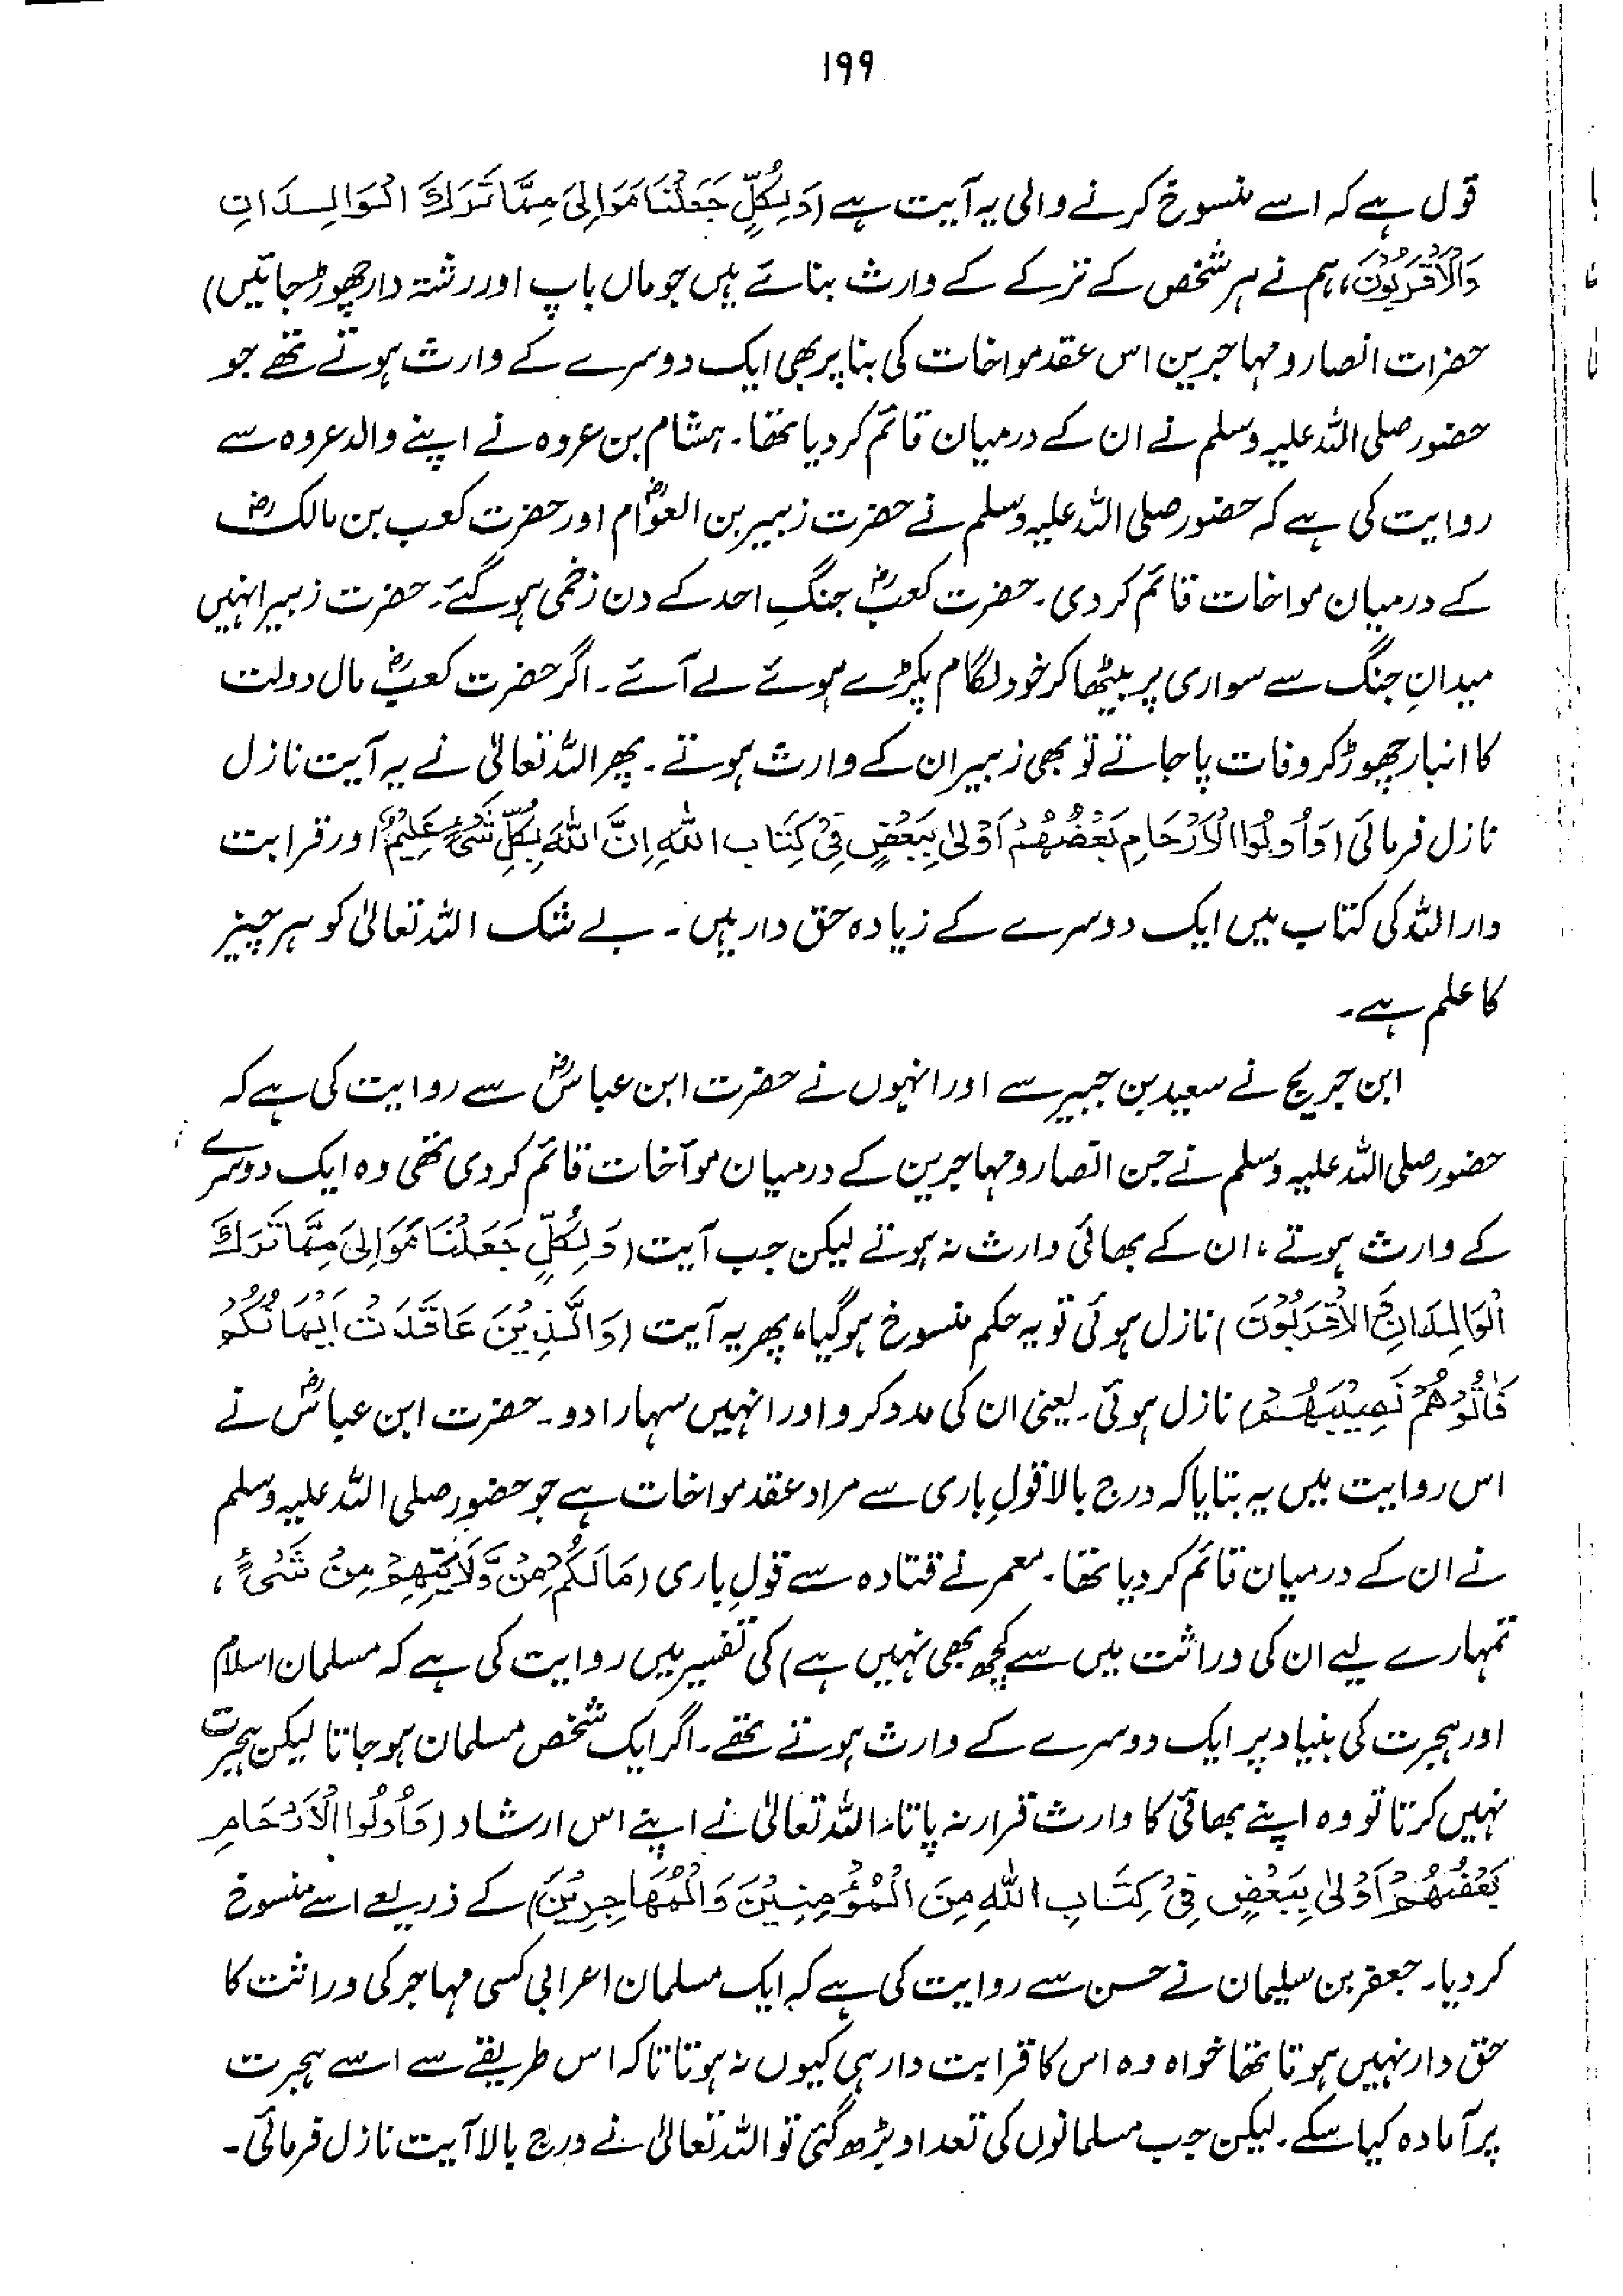 ۱۹۹
قول ہے کہ اسے منسوخ کرنے والی یہ آیت ہے (وَلِكُلٍّ جَعَلْنَا مَوَالِىَ مِمَّا تَرَكَ الْوَالِدَانِ
وَالْاَقْرَبُوْنَ، ہم نے ہر شخص کے ترکے کے وارث بنائے ہیں جو ماں باپ اور رشتہ دار چھوڑ جائیں)
حضرات انصار و مہاجرین اس عقد مواخات کی بنا پر بھی ایک دوسرے کے وارث ہوتے تھے جو
حضور صلی اللہ علیہ وسلم نے ان کے درمیان قائم کردیا تھا۔ ہشام بن عروہ نے اپنے والد عروہ سے
روایت کی ہے کہ حضور صلی اللہ علیہ وسلم نے حضرت زبیر بن العوامؓ اور حضرت کعب بن مالکؓ
کے درمیان مواخات قائم کردی۔ حضرت کعبؓ جنگِ احد کے دن زخمی ہوگئے۔ حضرت زبیر انہیں
میدانِ جنگ سے سواری پر بیٹھا کر خود لگام پکڑے ہوئے لے آئے۔ اگر حضرت کعبؓ مال دولت
کا انبار چھوڑ کر وفات پا جاتے تو بھی زبیر ان کے وارث ہوتے۔ پھر اللہ تعالیٰ نے یہ آیت نازل
نازل فرمائی (وَاُولُوا الْاَرْحَامِ بَعْضُهُمْ اَوْلىٰ بِبَعْضٍ فِىْ كِتَابِ اللهِ اِنَّ اللهَ بِكُلِّ شَىْءٍ عَلِيْمٌ اور قرابت
دار اللہ کی کتاب میں ایک دوسرے کے زیادہ حق دار ہیں۔ بے شک اللہ تعالیٰ کو ہر چیز
کا علم ہے۔
ابن جریج نے سعید بن جبیر سے اور انہوں نے حضرت ابن عباسؓ سے روایت کی ہے کہ
حضور صلی اللہ علیہ وسلم نے جن انصار و مہاجرین کے درمیان موآخات قائم کردی تھی وہ ایک دوسرے
کے وارث ہوتے، ان کے بھائی وارث نہ ہوتے لیکن جب آیت (وَلِكُلٍّ جَعَلْنَا مَوَالِىَ مِمَّا تَرَكَ
الْوَالِدَانِ وَالْاَقْرَبُوْنَ) نازل ہوئی تو یہ حکم منسوخ ہوگیا، پھر یہ آیت (وَالَّذِيْنَ عَاقَدَتْ اَيْمَانُكُمْ
فَاٰتُوْهُمْ نَصِيْبَهُمْ) نازل ہوئی۔ یعنی ان کی مدد کرو اور انہیں سہارا دو۔ حضرت ابن عباسؓ نے
اس روایت میں یہ بتایا کہ درج بالا قولِ باری سے مراد عقد مواخات ہے جو حضور صلی اللہ علیہ وسلم
نے ان کے درمیان قائم کردیا تھا۔ معمر نے قتادہ سے قولِ باری (مَالَكُمْ مِنْ وَّلَايَتِهِمْ مِنْ شَىْءٍ،
تمہارے لیے ان کی وراثت میں سے کچھ بھی نہیں ہے) کی تفسیر میں روایت کی ہے کہ مسلمان اسلام
اور ہجرت کی بنیاد پر ایک دوسرے کے وارث ہوتے تھے۔ اگر ایک شخص مسلمان ہوجاتا لیکن ہجرت
نہیں کرتا تو وہ اپنے بھائی کا وارث قرار نہ پاتا، اللہ تعالیٰ نے اپنے اس ارشاد (وَاُولُوا الْاَرْحَامِ
بَعْضُهُمْ اَوْلىٰ بِبَعْضٍ فِىْ كِتَابِ اللهِ مِنَ الْمُؤْمِنِيْنَ وَالْمُهَاجِرِيْنَ) کے ذریعے اسے منسوخ
کردیا۔ جعفر بن سلیمان نے حسن سے روایت کی ہے کہ ایک مسلمان اعرابی کسی مہاجر کی وراثت کا
حق دار نہیں ہوتا تھا خواہ وہ اس کا قرابت دار ہی کیوں نہ ہوتا تاکہ اس طریقے سے اسے ہجرت
پر آمادہ کیا سکے۔ لیکن جب مسلمانوں کی تعداد بڑھ گئی تو اللہ تعالیٰ نے درج بالا آیت نازل فرمائی۔